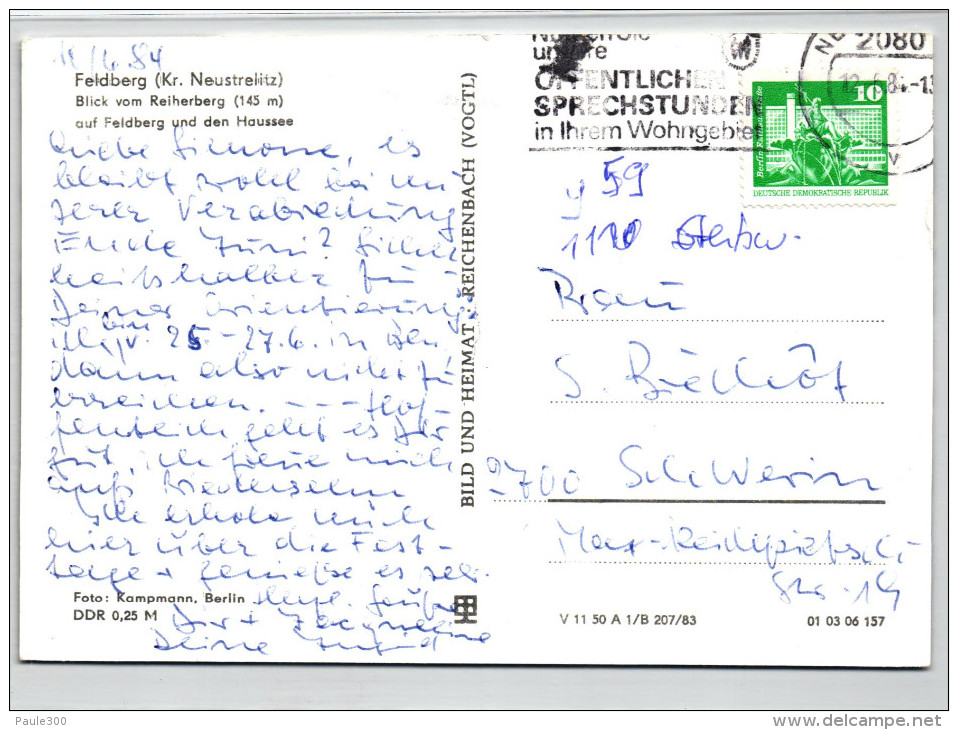 11/6.84
Feldberg (Kr. Neustrelitz)
Blick vom Reiherberg (145 m)
auf Feldberg und den Haussee
Liebe Simone, es
bleibt wohl bei un
serer Verabredung
Ende Juni? Sicher
heitshalber für
Deiner Orientierung:
bin
25.-27.6. in
dann also nicht zu
erreichen. --- Hof-
fentlich geht es Dir
gut, ich freue mich
aufs Wiedersehen
Ich erhole mich
hier über die Fest-
tage + genieße es sehr.
Herzl. Grüße
Dir + Jacqueline
Deine Ingrid
Foto: Kampmann, Berlin
DDR 0,25 M
BILD UND HEIMAT · REICHENBACH (VOGTL)
Nutzen Sie
unsere
ÖFFENTLICHEN
SPRECHSTUNDEN
in Ihrem Wohngebiet
2080
12.6.84.-13
10
DEUTSCHE DEMOKRATISCHE REPUBLIK
59
Frau
S.
2700 Schwerin
Str. 14
V 11 50 A 1/B 207/83
01 03 06 157
Paule300
www.delcampe.net